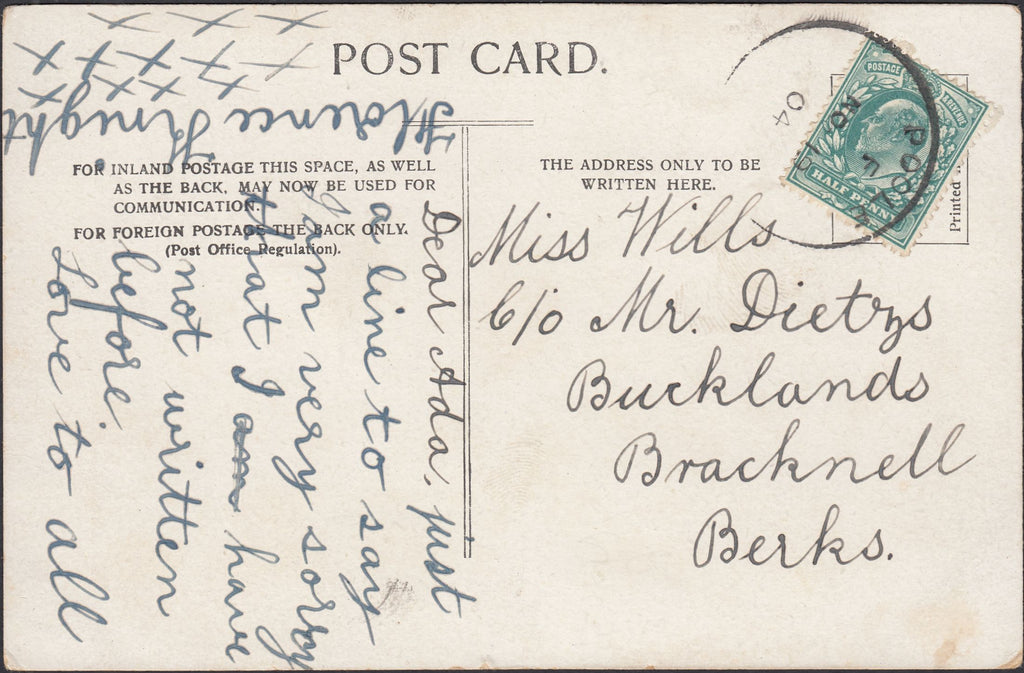 POST CARD.
FOR INLAND POSTAGE THIS SPACE, AS WELL
AS THE BACK, MAY NOW BE USED FOR
COMMUNICATION.
FOR FOREIGN POSTAGE THE BACK ONLY.
(Post Office Regulation).
THE ADDRESS ONLY TO BE
WRITTEN HERE.
POSTAGE
HALF PENNY
NO
04
Printed
Miss Wills
C/o Mr. Dietzs
Bucklands
Bracknell
Berks.
Dear Ada, just
a line to say
I am very sorry
that I am have
not written
before.
Love to all
Florence Knight
x x x
x x x x
x x x
x x x x